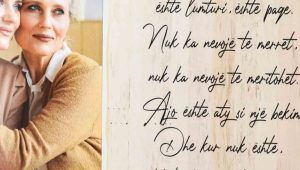 është lumturi. është paqe.
Nuk ka nevojë të merret,
nuk ka nevojë të meritohet.
Ajo është aty si një bekim
Dhe kur nuk është,